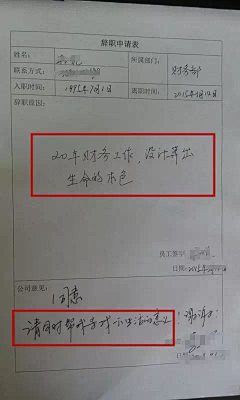 辞职申请表
姓名:
所属部门: 财务部
联系方式:
入职时间: 1995年7月1日
离职时间: 2015年7月14日
辞职原因:
20年财务工作，没计算出
生命的本色
员工签字:
日期:
公司意见:
同意
请同时帮我寻找下生活的意义! 谢谢!
日期: